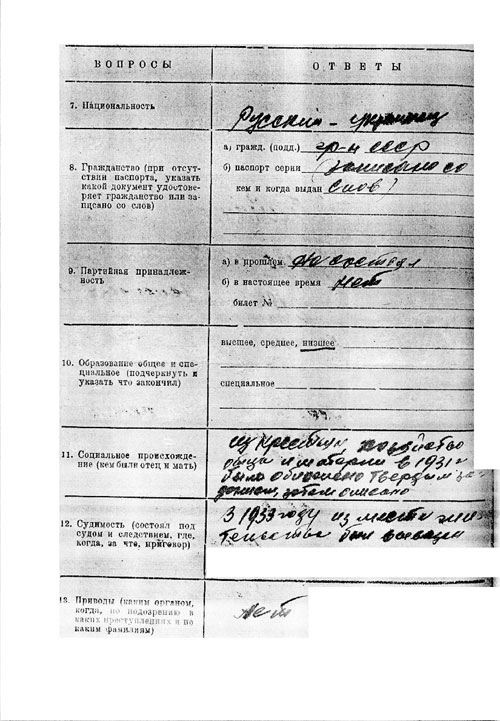 ВОПРОСЫ
ОТВЕТЫ
7. Национальность
Русский - украинец
8. Гражданство (при отсут-
ствии паспорта, указать
какой документ удостове-
ряет гражданство или за-
писано со слов)
а) гражд. (подд.) гр-н СССР
б) паспорт серии записано со
кем и когда выдан слов
9. Партийная принадлеж-
ность
а) в прошлом не состоял
б) в настоящее время нет
билет №
10. Образование общее и спе-
циальное (подчеркнуть и
указать что закончил)
высшее, среднее, низшее
специальное
11. Социальное происхожде-
ние (кем были отец и мать)
из крестьян, хозяйство
отца и матери в 1931 г
было обложено твердым за-
данием, затем описано
12. Судимость (состоял под
судом и следствием, где,
когда, за что, приговор)
В 1933 году из места жи-
тельства был
13. Приводы (каким органом,
когда, по подозрению в
каких преступлениях и по
каким фамилиям)
нет